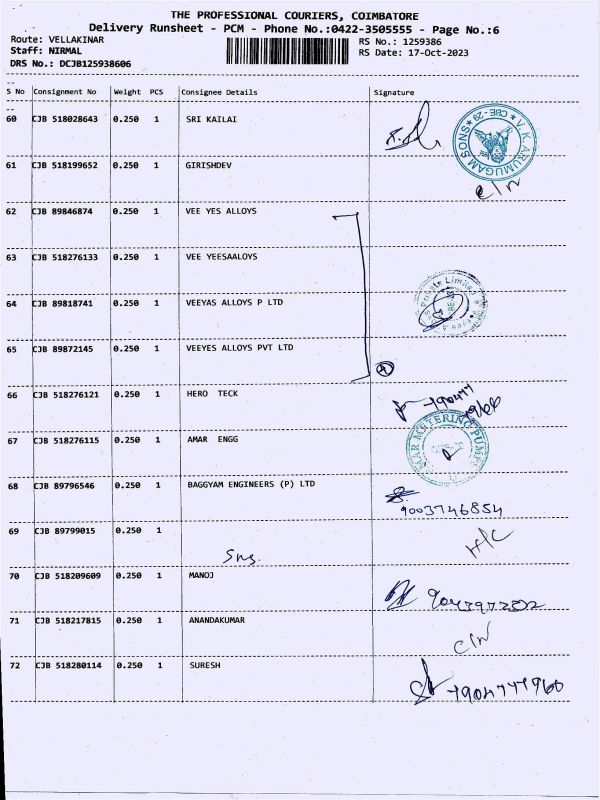 THE PROFESSIONAL COURIERS, COIMBATORE
Delivery Runsheet - PCM - Phone No.:0422-3505555 - Page No.:6
Route: VELLAKINAR
RS No.: 1259386
Staff: NIRMAL
RS Date: 17-Oct-2023
DRS No.: DCJB125938606
S No Consignment No Weight PCS Consignee Details Signature
60 CJB 518028643 0.250 1 SRI KAILAI
V.K. ARUMUGAM SONS CBE-29
61 CJB 518199652 0.250 1 GIRISHDEV
62 CJB 89846874 0.250 1 VEE YES ALLOYS
63 CJB 518276133 0.250 1 VEE YEESAALOYS
64 CJB 89818741 0.250 1 VEEYAS ALLOYS P LTD
Private Limited
65 CJB 89872145 0.250 1 VEEYES ALLOYS PVT LTD
66 CJB 518276121 0.250 1 HERO TECK
67 CJB 518276115 0.250 1 AMAR ENGG
METERING PUMP
68 CJB 89796546 0.250 1 BAGGYAM ENGINEERS (P) LTD
9003746854
69 CJB 89799015 0.250 1
70 CJB 518209609 0.250 1 MANOJ
71 CJB 518217815 0.250 1 ANANDAKUMAR
72 CJB 518280114 0.250 1 SURESH